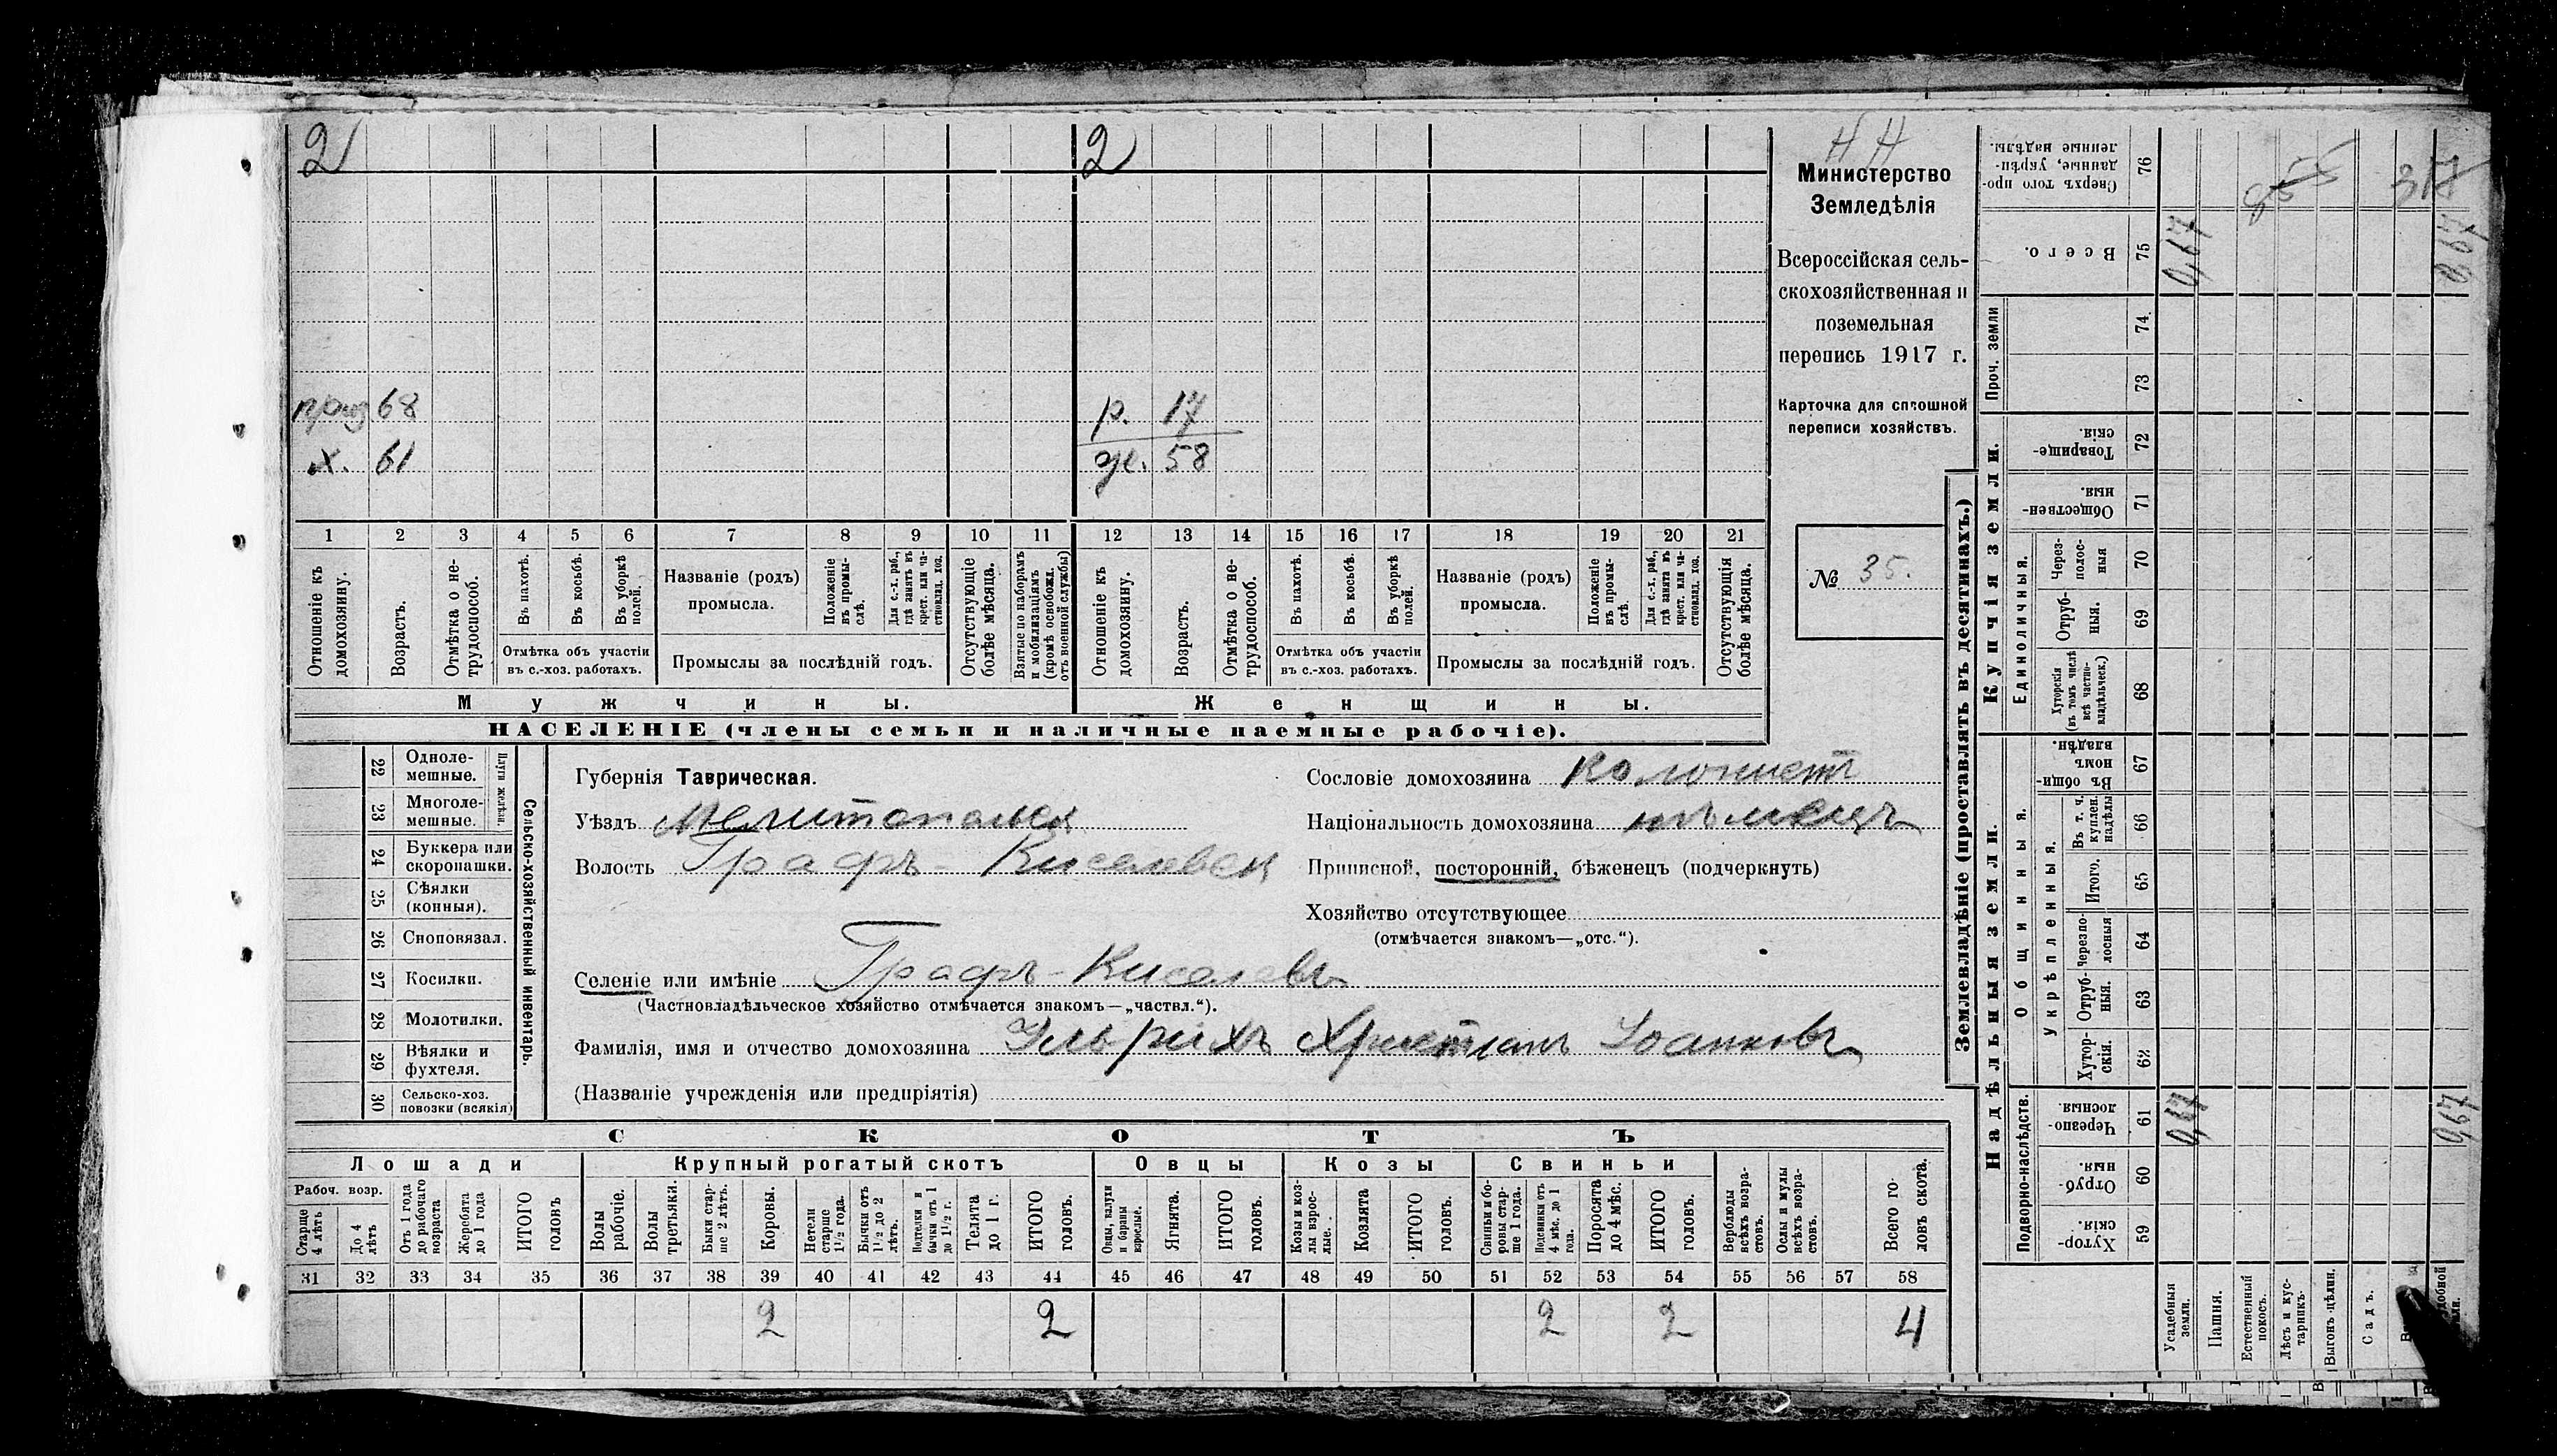 2 2
НН
Министерство
Земледѣлія
Всероссійская сель-
скохозяйственная и
поземельная
перепись 1917 г.
Карточка для сплошной
переписи хозяйствъ.
68 р. 17
х. 61 58
№ 35.
1 2 3 4 5 6 7 8 9 10 11 12 13 14 15 16 17 18 19 20 21
Отношеніе къ домохозяину.
Возрастъ.
Отмѣтка о не-трудоспособ.
Въ пахотѣ.
Въ косьбѣ.
Въ уборкѣ полей.
Отмѣтка объ участіи
въ с.-хоз. работахъ.
Названіе (родъ)
промысла.
Положеніе въ промы-слѣ.
Для с.-х. раб., гдѣ занятъ въ крест. или ча-стновлад. хоз.
Промыслы за послѣдній годъ.
Отсутствующіе болѣе мѣсяца.
Взятые по наборамъ и мобилизаціямъ (кромѣ освобожд. отъ военной службы)
Отношеніе къ домохозяину.
Возрастъ.
Отмѣтка о не-трудоспособ.
Въ пахотѣ.
Въ косьбѣ.
Въ уборкѣ полей.
Отмѣтка объ участіи
въ с.-хоз. работахъ.
Названіе (родъ)
промысла.
Положеніе въ промы-слѣ.
Для с.-х. раб., гдѣ занята въ крест. или ча-стновлад. хоз.
Промыслы за послѣдній годъ.
Отсутствующія болѣе мѣсяца.
Мужчины. Женщины.
НАСЕЛЕНІЕ (члены семьи и наличные наемные рабочіе).
22 Одноле-мешные.
23 Многоле-мешные.
Плуги желѣзн.
24 Буккера или скоропашки.
25 Сѣялки (конныя).
26 Сноповязал.
27 Косилки.
28 Молотилки.
29 Вѣялки и фухтеля.
30 Сельско-хоз. повозки (всякія)
Сельско-хозяйственный инвентарь.
Губернія Таврическая.
Уѣздъ Мелитопольск
Волость Графъ-Киселевск
Сословіе домохозяина Колонистъ
Національность домохозяина нѣмецъ
Приписной, посторонній, бѣженецъ (подчеркнуть)
Хозяйство отсутствующее
(отмѣчается знакомъ—„отс.“).
Селеніе или имѣніе Графъ-Киселевъ
(Частновладѣльческое хозяйство отмѣчается знакомъ—„частвл.“).
Фамилія, имя и отчество домохозяина Ульрихъ Христіанъ Іоанновъ
(Названіе учрежденія или предпріятія)
СКОТЪ
Лошади Крупный рогатый скотъ Овцы Козы Свиньи
Рабоч. возр.
Старше 4 лѣтъ
До 4 лѣтъ
Отъ 1 года до рабочаго возраста
Жеребята до 1 года
ИТОГО головъ
Волы рабочіе.
Волы третьяки.
Быки стар-ше 2 лѣтъ.
Коровы.
Нетели старше 1½ года.
Бычки отъ 1½ до 2 лѣтъ.
Подтелки и бычки отъ 1 до 1½ г.
Телята до 1 г.
ИТОГО головъ.
Овцы, валухи и бараны взрослые.
Ягнята.
ИТОГО головъ.
Козы и коз-лы взрос-лые.
Козлята
ИТОГО головъ.
Свиньи и бо-ровы стар-ше 1 года.
Подсвинки отъ 4 мѣс. до 1 года.
Поросята до 4 мѣс.
ИТОГО головъ.
Верблюды всѣхъ возра-стовъ.
Ослы и мулы всѣхъ возра-стовъ.
Всего го-ловъ скота.
31 32 33 34 35 36 37 38 39 40 41 42 43 44 45 46 47 48 49 50 51 52 53 54 55 56 57 58
2 2 2 2 4
Землевладѣніе (проставлять въ десятинахъ.)
Купчія земли.
Надѣльныя земли.
Сверхъ того про-данные, укрѣп-ленные надѣлы. 76
Всего. 75 0,67
Проч. земли 74 73
Товарище-скія. 72
Обществен-ныя. 71
Единоличныя.
Через-полос-ныя 70
Отруб-ныя. 69
Хуторскія (въ томъ числѣ всѣ частно-владѣльческ.) 68
Общинныя.
Въ общи-номъ владѣн. 67
Укрѣпленныя.
Въ т. ч. куплен. надѣлы 66
Итого. 65
Черезпо-лосныя 64
Отруб-ныя. 63
Хутор-скія. 62
Подворно-наслѣдств.
Черезпо-лосныя. 61 0,67 0,67
Отруб-ныя. 60
Хутор-скія. 59
Усадебныя земли.
Пашня.
Естественный покосъ.
Лѣсъ и кус-тарникъ.
Выгонъ цѣлин.
Садъ.